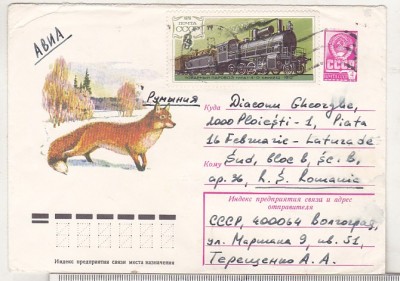 АВИА
ПОЧТА
СССР
СССР
Румыния
Куда Diaconu Gheorghe,
2000 Ploiești-1, Piata
16 Februarie - Latura de
Кому Sud, bloc b, sc. b,
ap. 36, R.S. Romania
Индекс предприятия связи и адрес
отправителя
СССР, 400064 Волгоград,
ул. Маршала 9, кв. 51,
Терещенко А. А.
Индекс предприятия связи места назначения